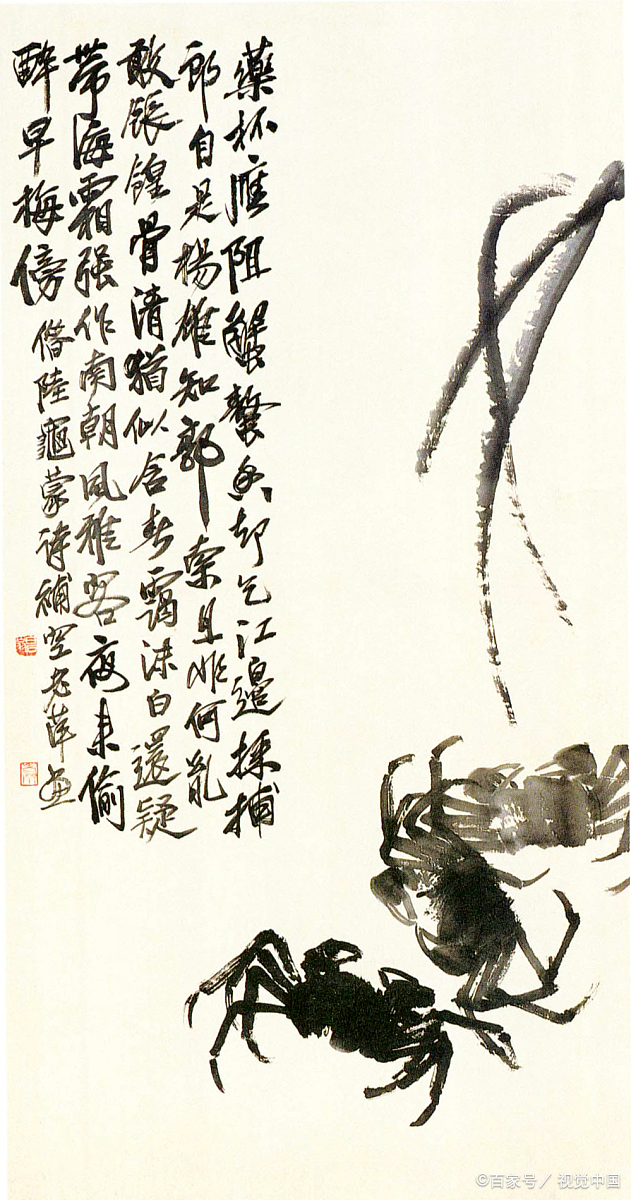 藥杯應阻蟹螯香却乞江邊採捕
郎自是楊雄知郭索且非何胤
敢餦餭骨清猶似含春靄沫白還疑
帶海霜强作南朝風雅客夜來偷
醉早梅傍 借陸龜蒙詩補空老萍畫
©百家号／视觉中国